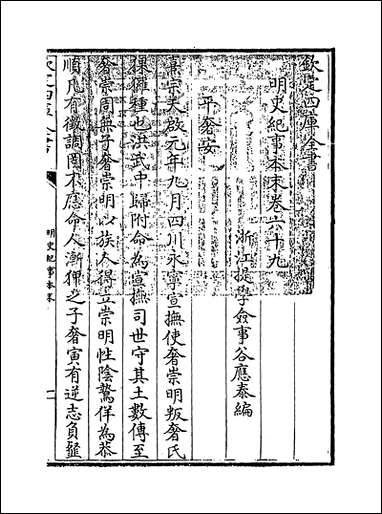 欽定四庫全書
明史紀事本末卷六十九
浙江提學僉事谷應泰編
平奢安
熹宗天啟元年九月四川永寧宣撫使奢崇明叛奢氏
猓玀種也洪武中歸附命為宣撫司世守其土數傳至
奢崇周無子奢崇明以族人得立崇明性陰鷙佯為恭
順凡有徵調罔不應命人漸狎之子奢寅有逆志負
欽定四庫全書
明史紀事本末
一